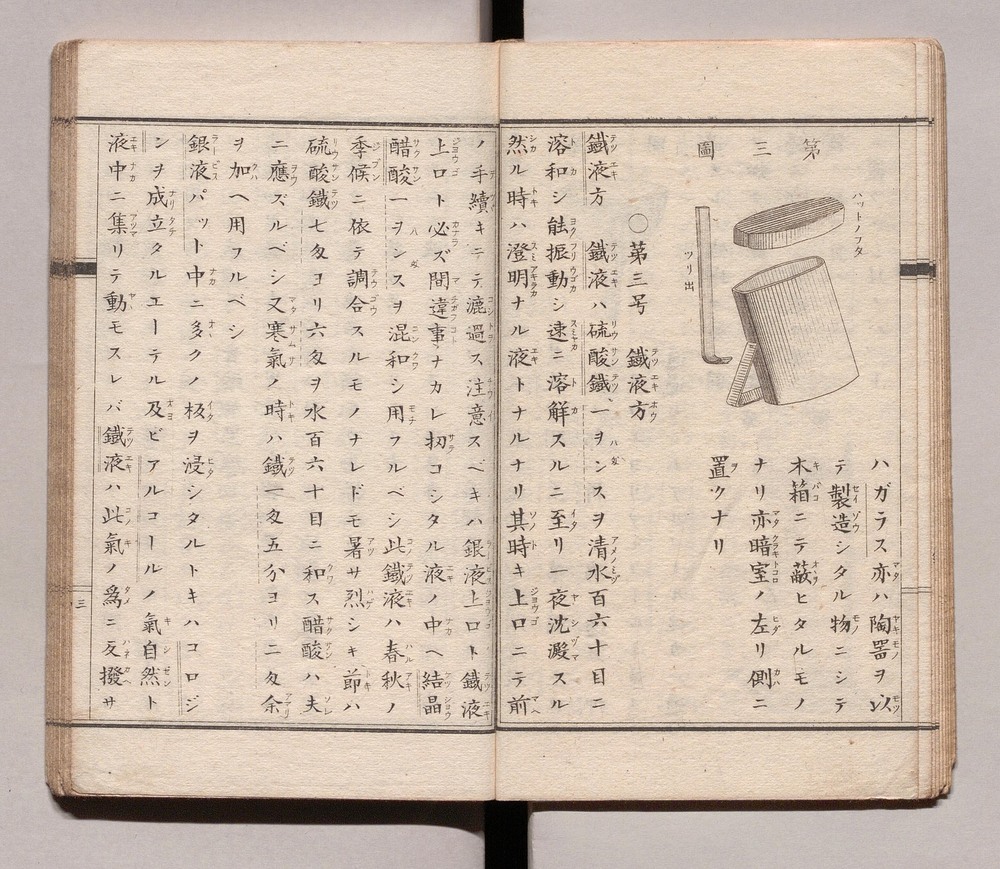 第三圖
バットノフタ
ツリ出
ハガラス亦ハ陶器ヲ以
テ製造シタル物ニシテ
木箱ニテ蔽ヒタルモノ
ナリ亦暗室ノ左リ側ニ
置クナリ
〇第三号 鐵液方
鐵液方 鐵液ハ硫酸鐵一ヲンスヲ清水百六十目ニ
溶和シ能振動シ速ニ溶解スルニ至リ一夜沈澱スル
然ル時ハ澄明ナル液トナルナリ其時キ上口ニテ前
ノ手續キニテ漉過ス注意スベキハ銀液上口ト鐵液
上口ト必ズ間違事ナカレ扨コシタル液ノ中ヘ結晶
醋酸一ヲンスヲ混和シ用フルベシ此鐵液ハ春秋ノ
季候ニ依テ調合スルモノナレドモ暑サ烈シキ節ハ
硫酸鐵七匁ヨリ六匁ヲ水百六十目ニ和ス醋酸ハ夫
ニ應ズルベシ又寒氣ノ時ハ鐵一匁五分ヨリ二匁余
ヲ加ヘ用フルベシ
銀液バット中ニ多クノ板ヲ浸シタルトキハコロジ
ンヲ成立タルエーテル及ビアルコールノ氣自然ト
液中ニ集リテ動モスレバ鐵液ハ此氣ノ為ニ反撥サ
三